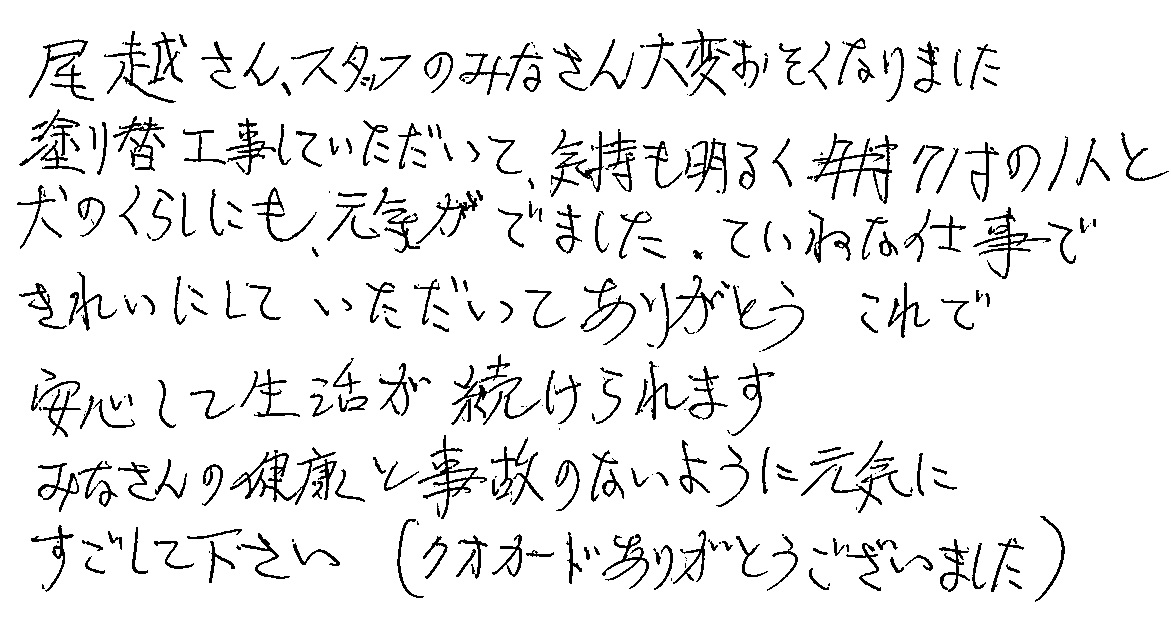 尾越さん、スタッフのみなさん大変おそくなりました
塗り替工事していただいて、気持も明るく の1人と
犬のくらしにも、元気がでました。ていねな仕事で
きれいにして いただいてありがとう これで
安心して生活が続けられます
みなさんの健康と事故のないように元気に
すごして下さい (クオカードありがとうございました)